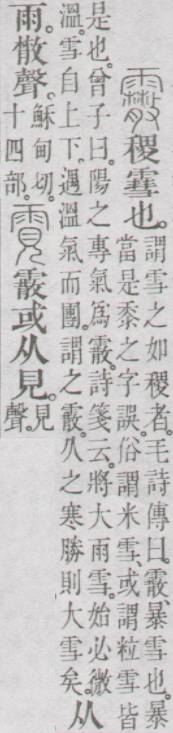 霰稷雪也。謂雪之如稷者。毛詩傳曰。霰、暴雪也。暴
當是黍之字誤。俗謂米雪、或謂粒雪皆
是也。曾子曰。陽之專氣爲霰。詩箋云。將大雨雪。始必微
溫。雪自上下。遇溫氣而團。謂之霰。久之寒勝則大雪矣。从
雨。㪔聲。穌甸切。
十四部。䨘霰或从見。見
聲。